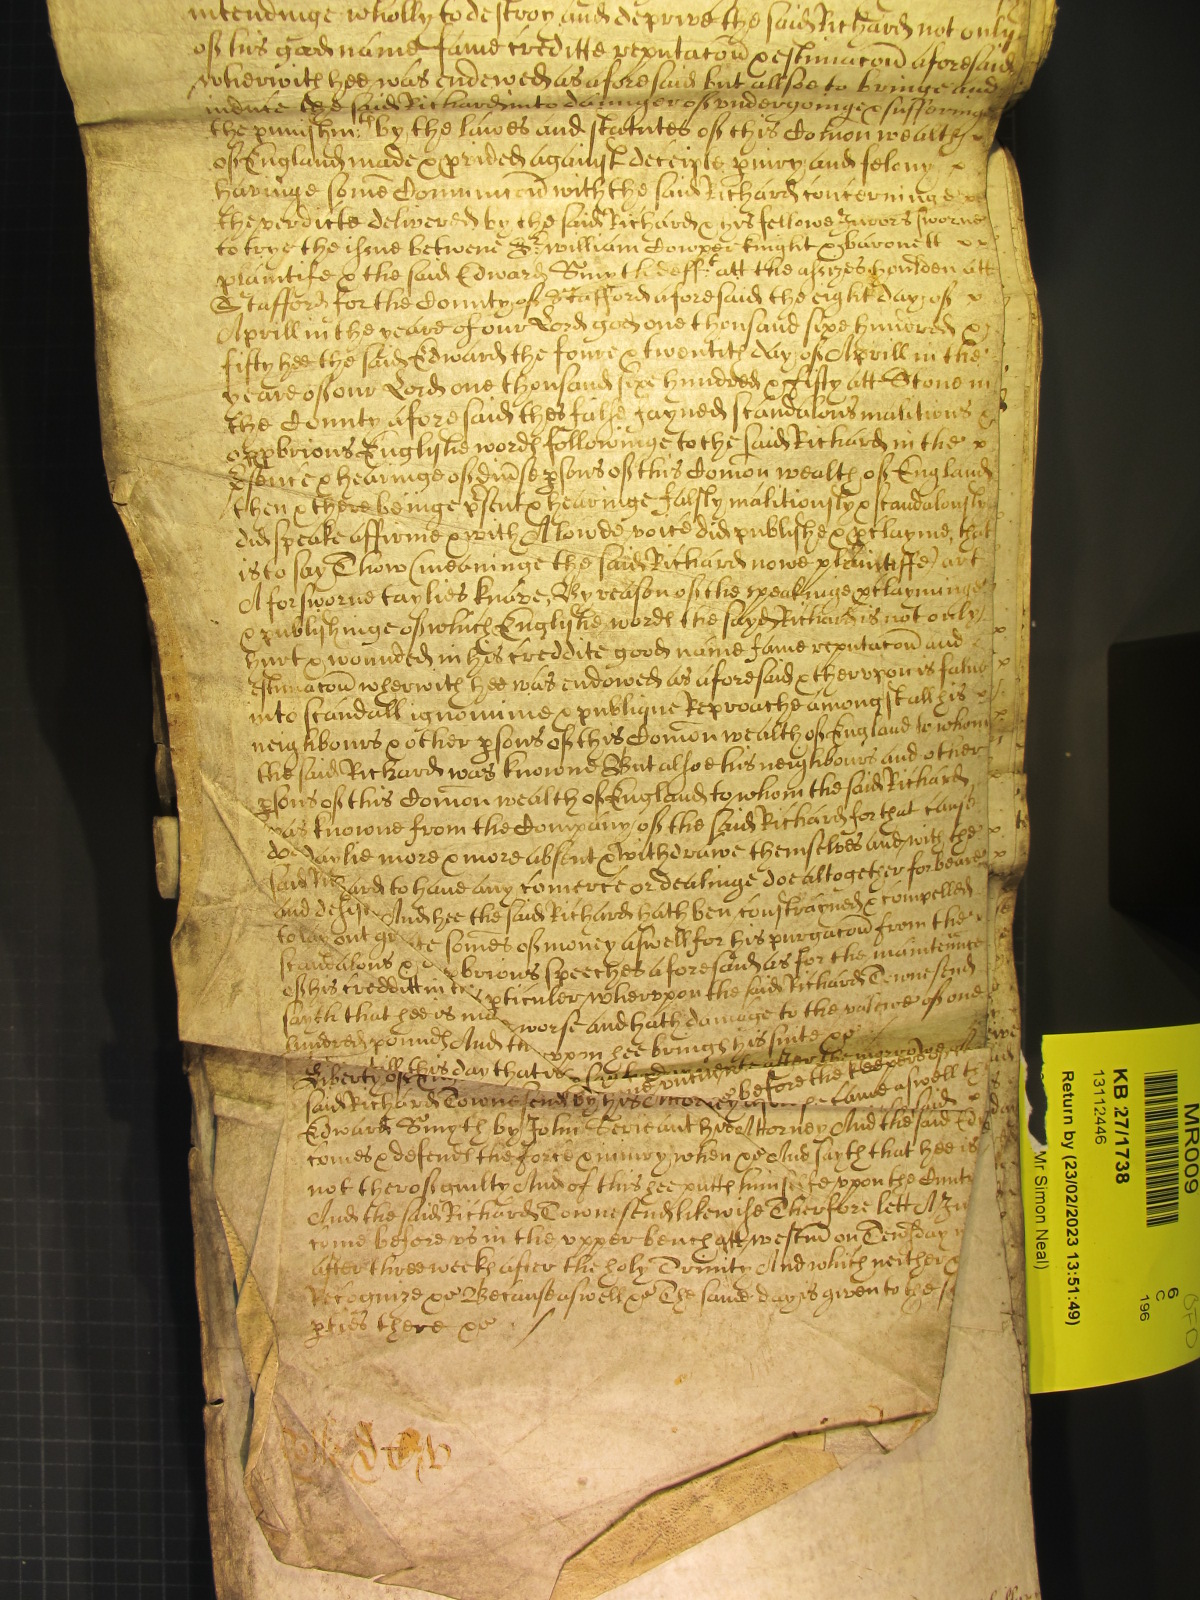 intendinge wholly to destroy and deprive the said Richard not only
of his good name fame creditte reputacon & estimacon aforesaid
wherwith hee was endewed as aforesaid but allsoe to bringe and
induce the said Richard into daunger of undergoinge & sufferinge
the punishmt by the lawes and statutes of this Comon wealth
of England made & pvided against periury and felony
havinge some Communicacon with the said Richard concerninge
the verdicte delivered by the said Richard & his fellowe Jurors sworne
to trye the issue betwene Sr William Cowper knight & baronett
plaintife & the said Edward Smyth defft att the assizes houlden att
Stafford for the County of Stafford aforesaid the eight day of
Aprill in the yeare of our Lord god one thousand sixe hundred &
fifty hee the said Edward the foure & twentith day of Aprill in the
yeare of our Lord one thousand sixe hundred & fifty att Stone in
the County aforesaid thes false fayned scandalous malitious &
opprobrious Englishe words followinge to the said Richard in the
psence & hearinge of divse psons of this Comon wealth of England
then & there beinge psent & hearinge falsly malitiously & scandalously
did speake affirme & with A lowde voice did publishe & pclayme that
is to say Thow (meaninge the said Richard nowe plaintiffe) art
A forsworne knave, By reason of the speakinge pclayminge
& publishinge of which Englishe words the sayd Richard is not only
hurt & wounded in his creddite good name fame reputacon and
estimacon wherwith hee was endowed as aforesaid & therupon is falne
into scandall ignominie & publique Reproache amongst all his
neighbours & other psons of this Comon wealth of England to whom
the said Richard was knowne But alsoe his neighbours and other
psons of this Comon wealth of England to whom the said Richard
was knowne from the Company of the said Richard for that cause
doe daylie more & more absent & withdrawe themselves and with the
said Richard to have any comerce or dealinge doe altogether forbeare
and desist And hee the said Richard hath ben constrayned & compelled
to lay out greate somes of money aswell for his purgacon from the
scandalous & opprobrious speeches aforesaid as for the maintennce
of his credditt in pticuler, wherupon the said Richard Townesend
sayth that hee is worse and hath damage to the valewe of one
hundred pounds And upon hee brings his suite &c
Liberty of this day that is
said Richard Townesend by his Attorney before the Keepers came aswell the
Edward Smyth by John Serieant his Attorney And the said
comes & defends the force & iniury when &c And sayth that hee is
not therof guilty And of this hee putts himselfe uppon the Cuntr
And the said Richard Townesend likewise Therfore lett A Ju
come before us in the upper bench att Westmr on Tewsday
after three weeks after the holy Trinity And which neither
Recognize &c Because aswell &c The same day is given to the s
pties there &c
MR009
KB 27/1738
13112446
Return by (23/02/2023 13:51:49)
Mr Simon Neal)
6
C
196